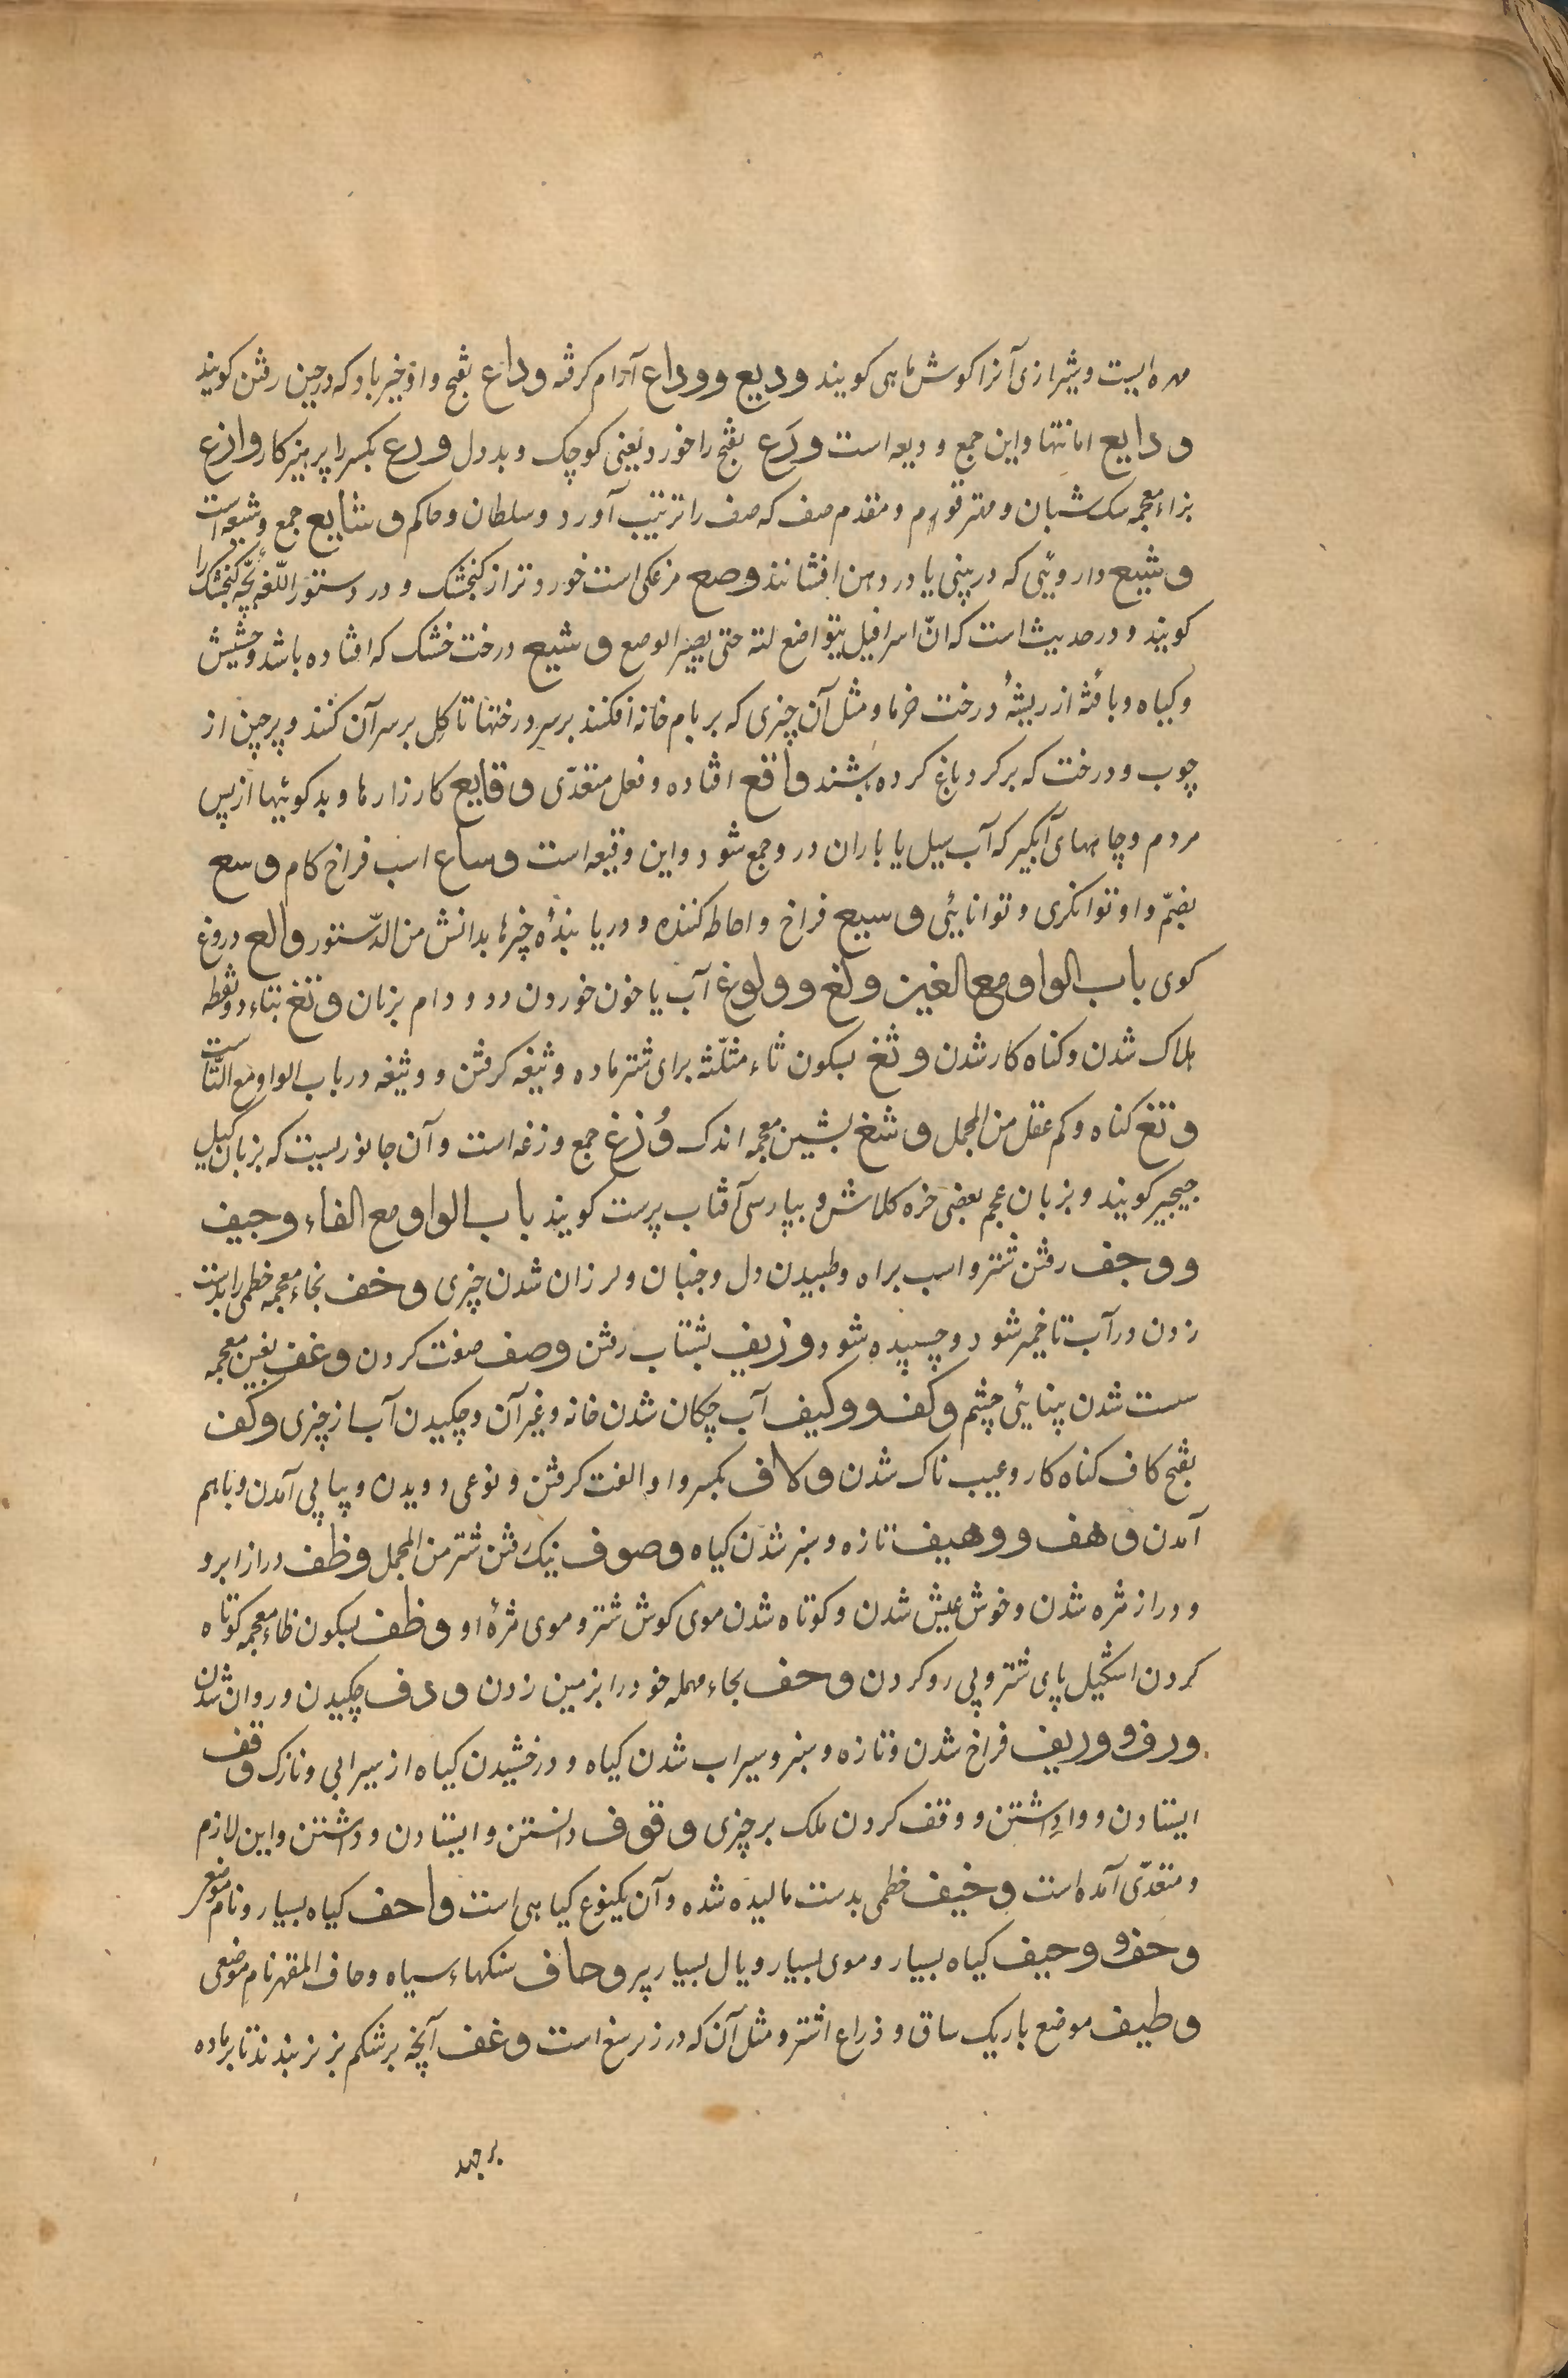 مهره ایست و شیرازی آنرا کوش ماهی کویند ودیع ووداع آرام کرفته وداع بفتح واو خیرباد که در حین رفتن کویند
ودایع امانتها و این جمع ودیعه است ورَع بفتح را خورد یعنی کوچک و بددل ورع بکسر را پرهیزکار وازع
بزاء معجمه سک شبان و مهتر قوم و مقدم صف که صف را ترتیب آورد و سلطان و حاکم وشایع جمع وشیعه است
وشیع داروئی که در بینی یا در دهن افشانند وصع مرغکی است خوردتر از کنجشک و در دستور اللّغه بچّه کنجشک را
کویند و در حدیث است که انّ اسرافیل یتواضع لله حتی یصیر الوصع وشیع درخت خشک که افتاده باشد و حشیش
و کیاه و بافته از ریشهٔ درخت خرما و مثل آن چیزی که بر بام خانه افکنند بر سر درختها تا کِل بر سر آن کنند و پرچین از
چوب و درخت که بر کرد باغ کرده باشند واقع افتاده و فعل متعدّی وقایع کارزارها و بدکوئیها از پس
مردم و چاههای آبکیر که آب سیل یا باران در و جمع شود و این وقیعه است وساع اسب فراخ کام وسع
بضمّ واو توانکری و توانایی وسیع فراخ و احاطه کننده و دریابندهٔ چیزها بدانش من الدّستور والع دروغ
کوی باب الواو مع الغین ولغ وولوغ آب یا خون خوردن دد و دام بزبان وتغ بتاء دو نقطه
هلاک شدن و کناه کار شدن وثغ بسکون ثاء مثلّثه برای شتر ماده وثیغه کرفتن و وثیغه در باب الواو مع التّاست
وتغ کناه و کم عقل من المجمل وشغ بشین معجمه اندک وُزغ جمع وزغه است و آن جانوریست که بزبان کیل
جیجیر کویند و بزبان عجم بعضی خره کلاش و بپارسی آفتاب پرست کویند باب الواو مع الفاء وجیف
ووجف رفتن شتر و اسب براه و طبیدن دل و جنبان و لرزان شدن چیزی وخف بخاء معجمه خطمی را بدست
زدن در آب تا خمیر شود و چسپیده شود وزیف بشتاب رفتن وصف صفت کردن وغف بغین معجمه
سست شدن بینایی چشم وکف ووکیف آب چکان شدن خانه و غیر آن و چکیدن آب از چیزی وکف
بفتح کاف کناه کار و عیب ناک شدن ولاف بکسر واو الفت کرفتن و نوعی دویدن و پیاپی آمدن و باهم
آمدن وهف ووهیف تازه و سبز شدن کیاه وصوف نیک رفتن شتر من المجمل وظف دراز ابرو
و دراز مژه شدن و خوش عیش شدن و کوتاه شدن موی کوش شتر و موی مژهٔ او وظف بسکون ظاء معجمه کوتاه
کردن اشکیل پای شتر و پی رو کردن وحف بحاء مهمله خود را بزمین زدن ودف چکیدن و روان شدن
ورف ووریف فراخ شدن و تازه و سبز و سیراب شدن کیاه و درخشیدن کیاه از سیرابی و نازک وقف
ایستادن و واداشتن و وقف کردن ملک بر چیزی وقوف دانستن و ایستادن و داشتن و این لازم
و متعدّی آمده است وخیف خطمی بدست مالیده شده و آن یکنوع کیاهی است واحف کیاه بسیار و نام موضعی
وحف ووحیف کیاه بسیار و موی بسیار و یال بسیار پر وحاف سنکهاء سیاه و حاف القهر نام موضعی
وظیف موضع باریک ساق و ذراع اشتر و مثل آن که در زیر سغ است وغف آنچه بر شکم بز نر بندند تا بر ماده
برجهد